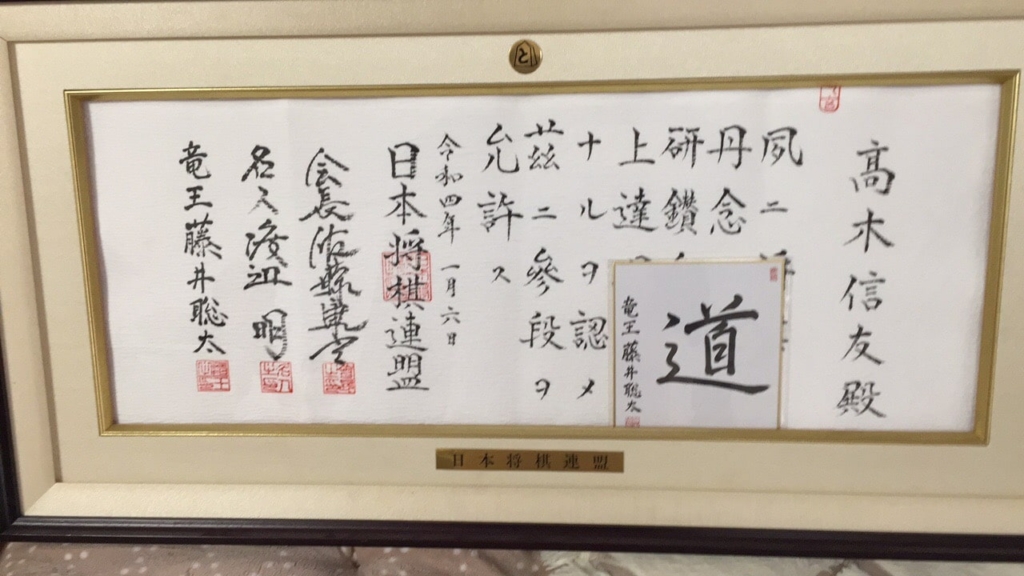 高木信友殿
夙ニ
丹念
研鑽
上達
ナルヲ認メ
茲ニ参段ヲ
允許ス
令和四年一月六日
日本将棋連盟
会長佐藤康光
名人渡辺明
竜王藤井聡太
道
竜王藤井聡太
日本将棋連盟
と